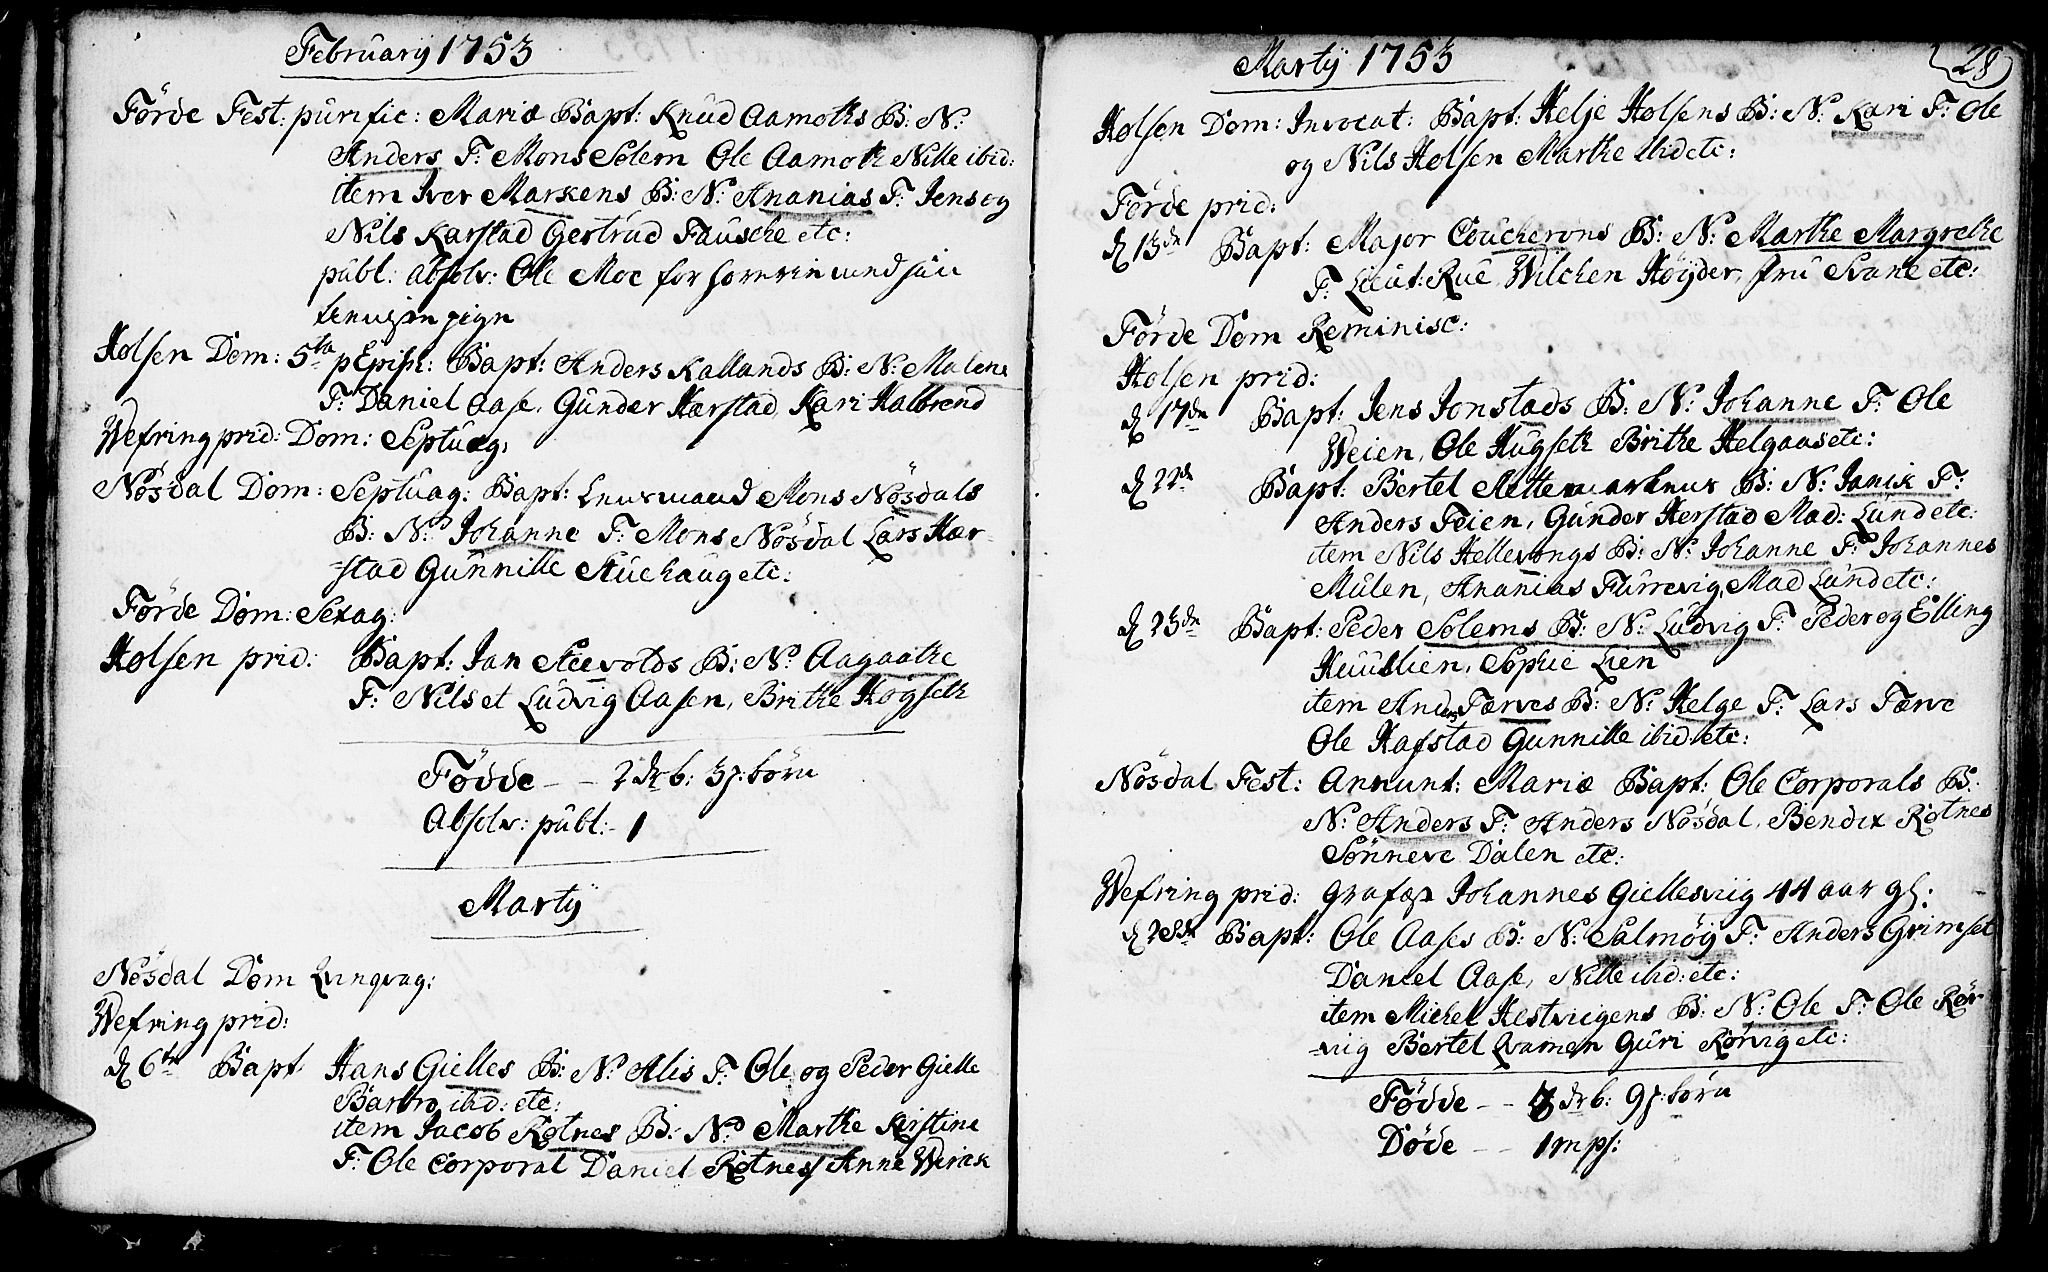 Februarÿ 1753
Förde Fest: pürific: Mariæ Bapt: Knud Aamoths B: N:
Anders F: Mons Solem Ole Aamoth Nille ibid:
item Iver Markens B: N: Ananias F: Jens og
Nils Karstad Gertrud Fausche etc:
publ: absolv: Ole Moe for
Holsen Dom: 5ta p Epiph: Bapt: Anders Kallands B: N: Malene
F: Daniel Aase, Gunder Hærstad, Kari Halbrend
Wefring prid: Dom: Septuag:
Nösdal Dom: Septuag: Bapt: Lensmand Mons Nösdals
B: N: Johanne F: Mons Nösdal Lars Hær-
-stad Gunnilde Stuehaug etc:
Förde Dom: Sexag:
Holsen prid: Bapt: Jan B: N: Aagaathe
F: Nils et Ludvig Aasen, Brithe Hogseth
Födde - - 2 drb: 3 p: börn
Absolv: publ: - 1
Martÿ
Nösdal Dom Qvinqvag:
Wefring prid:
d 6te Bapt Hans Gielles B: N: Alis F: Ole og Peder Gielle
Barbro ibid: etc:
item Jacob Rotnes B: N: Marthe Kirstine
F: Ole Corporal Daniel Rotnes Anne Werak
Martÿ 1753
28
Holsen Dom: Invocat: Bapt: Helje Holsens B: N: Kari F: Ole
og Nils Holsen Marthe ibid etc:
Förde prid:
d 13de Bapt: Major Coucherons B: N: Marthe Margrethe
F: Lieut: Rue, Wilchen Höÿder, fru Svane etc:
Förde Dom Reminisc:
Holsen prid:
d 17de Bapt: Jens Jonstads B: N: Johanne F: Ole
Weien, Ole Hugseth Brithe Helgaas etc:
d 22de Bapt: Bertel B: N: Janik F:
Anders Feien, Gunder Herstad Mad: Lund etc:
item Nils Hellevongs B: N: Johanne F: Johannes
Mulen, Ananias Furrevig, Mad Lund etc:
d 23de Bapt: Peder Solems B: N: Ludvig F: Peder og Elling
Huuslien, Sophie Lien
item Anders Færves B: N: Helge F: Lars Færve
Ole Hafstad Gunnilde ibid: etc:
Nösdal Fest: Annunt: Mariæ Bapt: Ole Corporals B:
N: Anders F: Anders Nösdal, Bendix Rotnes
Sönneve Dalen etc:
Wefring prid: Johannes Giellesviig 44 aar gl:
d 28de Bapt: Ole Aases B: N: Salmöy F: Anders Grimset
Daniel Aase, Nille ibid: etc:
item Michel Hestviigens B: N: Ole F: Ole Rör-
-vig Bertel Qvamen Guri Rörvig etc:
Födde - - drb: 9 p: börn
Döde - - 1 mp: